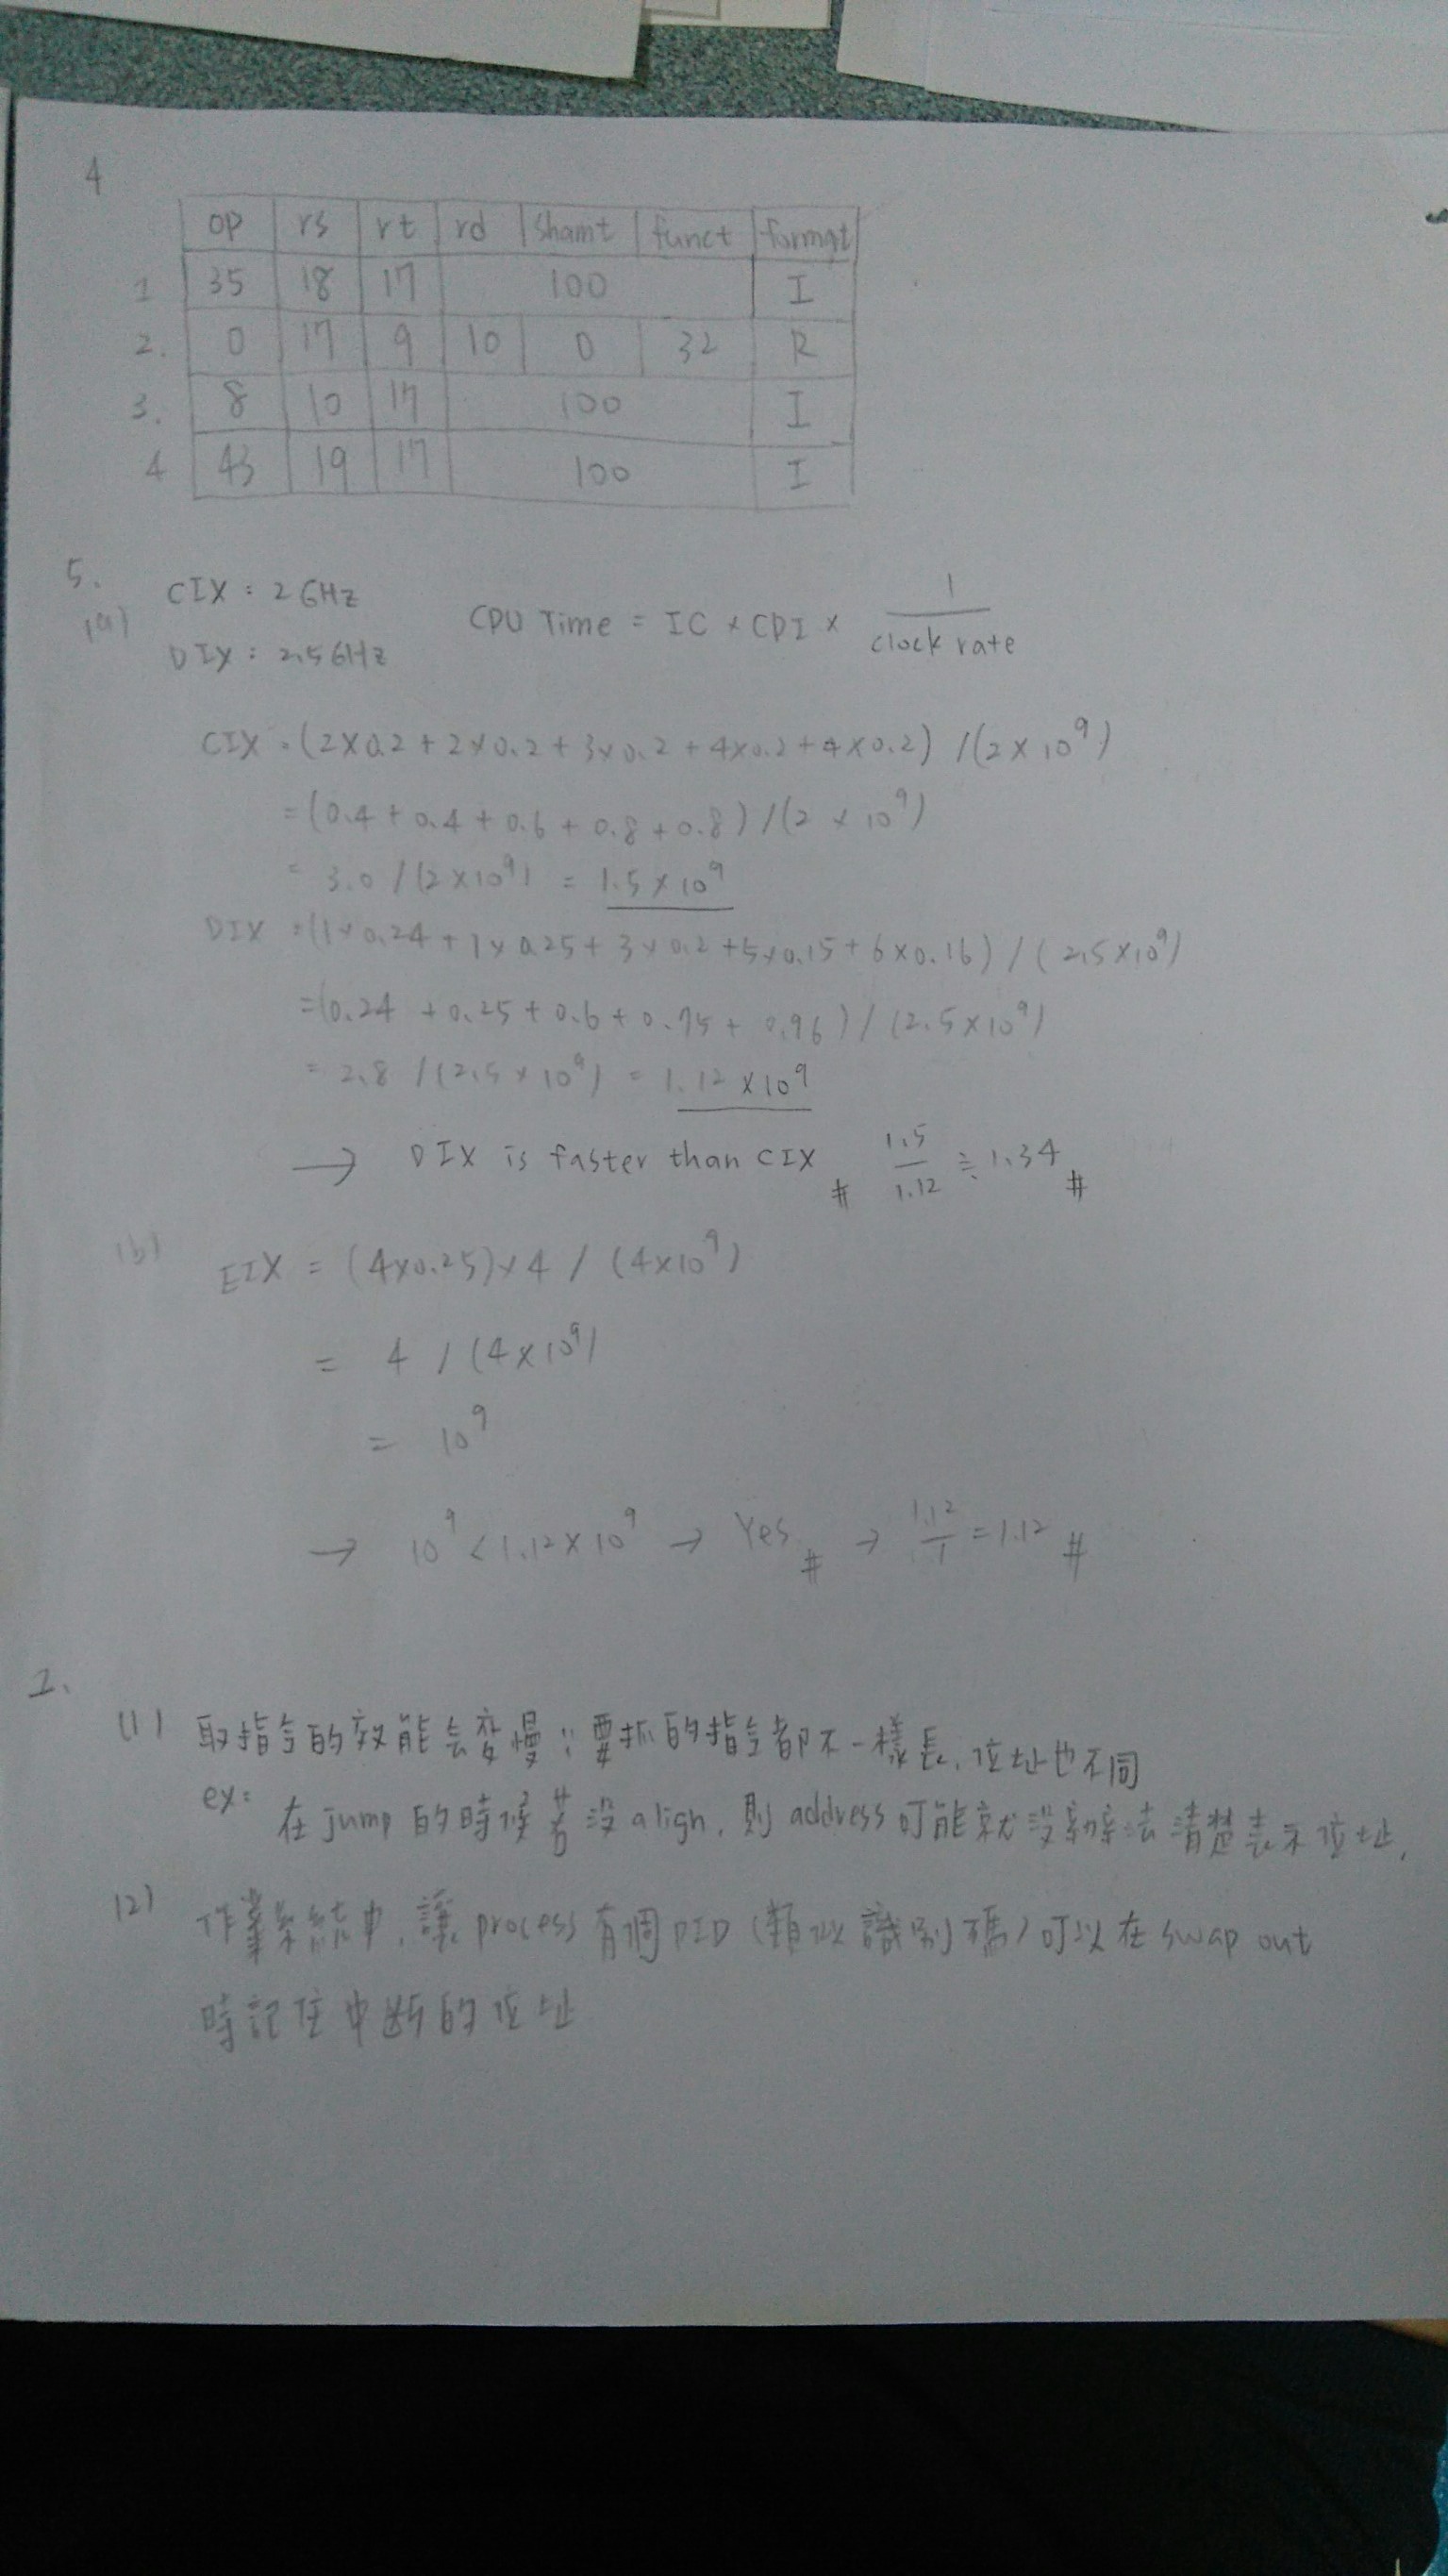 4
op rs rt rd shamt funct format
1 35 18 17 100 I
2. 0 17 9 10 0 32 R
3. 8 10 17 100 I
4 43 19 17 100 I
5.
(a) CIX : 2 GHz
DIX : 2.5 GHz
CPU Time = IC × CPI × 1 / clock rate
CIX = (2×0.2 + 2×0.2 + 3×0.2 + 4×0.2 + 4×0.2) / (2×10⁹)
= (0.4 + 0.4 + 0.6 + 0.8 + 0.8) / (2 × 10⁹)
= 3.0 / (2×10⁹) = 1.5 × 10⁹
DIX = (1×0.24 + 1×0.25 + 3×0.2 + 5×0.15 + 6×0.16) / (2.5×10⁹)
= (0.24 + 0.25 + 0.6 + 0.75 + 0.96) / (2.5×10⁹)
= 2.8 / (2.5 × 10⁹) = 1.12 × 10⁹
→ DIX is faster than CIX # 1.5/1.12 ≒ 1.34 #
(b) EIX = (4×0.25)×4 / (4×10⁹)
= 4 / (4×10⁹)
= 10⁹
→ 10⁹ < 1.12×10⁹ → Yes # → 1.12/1 = 1.12 #
2.
(1) 取指令的效能会變慢 ∵要抓的指令都不一樣長, 位址也不同
ex: 在jump的時候若沒align, 則address可能就沒辦法清楚表示位址.
(2) 作業系統中, 讓process有個PID (類似識別碼) 可以在swap out
時記住中断的位址